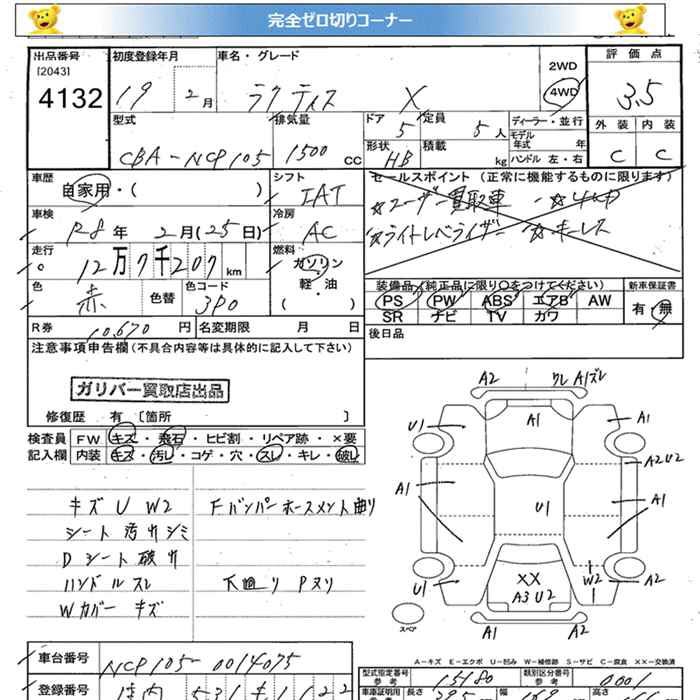 完全ゼロ切りコーナー
出品番号 初度登録年月 車名・グレード 2WD 評価点
[2043] 4132 19 2月 ラクティス X 4WD 3.5
型式 排気量 ドア 5 定員 5人 ディーラー・並行 外装 内装
CBA-NCP105 1500cc 形状 HB 積載 kg モデル年式 年 ハンドル 左・右 C C
車歴 自家用・( ) シフト IAT セールスポイント (正常に機能するものに限ります)
車検 R8年 2月(25日) 冷房 AC ☆ユーザー買取車 ☆4WD
☆ライトレベライザー ☆キーレス
走行 12万7千207km 燃料 ガソリン・軽・油 ( )
色 赤 色替 色コード 3P0 装備品(純正品に限り○をつけてください) 新車保証書
PS PW ABS エアB AW 有・無
SR ナビ TV カワ
R券 10,670円 名変期限 月 日 後日品
注意事項申告欄(不具合内容等は具体的に記入して下さい)
ガリバー買取店出品
修復歴 有 [箇所 ]
検査員 FW キズ・飛石・ヒビ割・リペア跡・×要
記入欄 内装 キズ・汚レ・コゲ・穴・スレ・キレ・破レ
キズ U W2 Fバンパーホースメント曲り
シート汚れシミ
Dシート破れ
ハンドルスレ 下廻り Pヌリ
Wカバーキズ
A2 ワレ A1ズレ
U1 A1 A1
A2U2
A1 U1 A1
U1 XX A3U2 W2 A2
スペア A1 A2
A-キズ E-エクボ U-凹み W-補修跡 S-サビ C-腐食 XX-交換済
車台番号 NCP105-0014075
型式指定番号 参考 15180 類別区分番号 参考 0001
登録番号
車庫証明用 長さ 幅 高さ